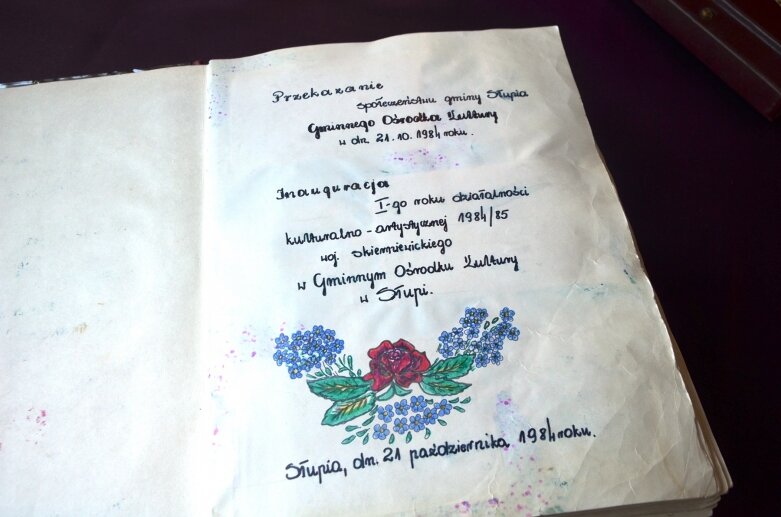 Przekazanie
społeczeństwu gminy Słupia
Gminnego Ośrodka Kultury
w dn. 21.10.1984 roku.
Inauguracja
I-go roku działalności
kulturalno-artystycznej 1984/85
woj. skierniewickiego
w Gminnym Ośrodku Kultury
w Słupi.
Słupia, dn. 21 października 1984 roku.